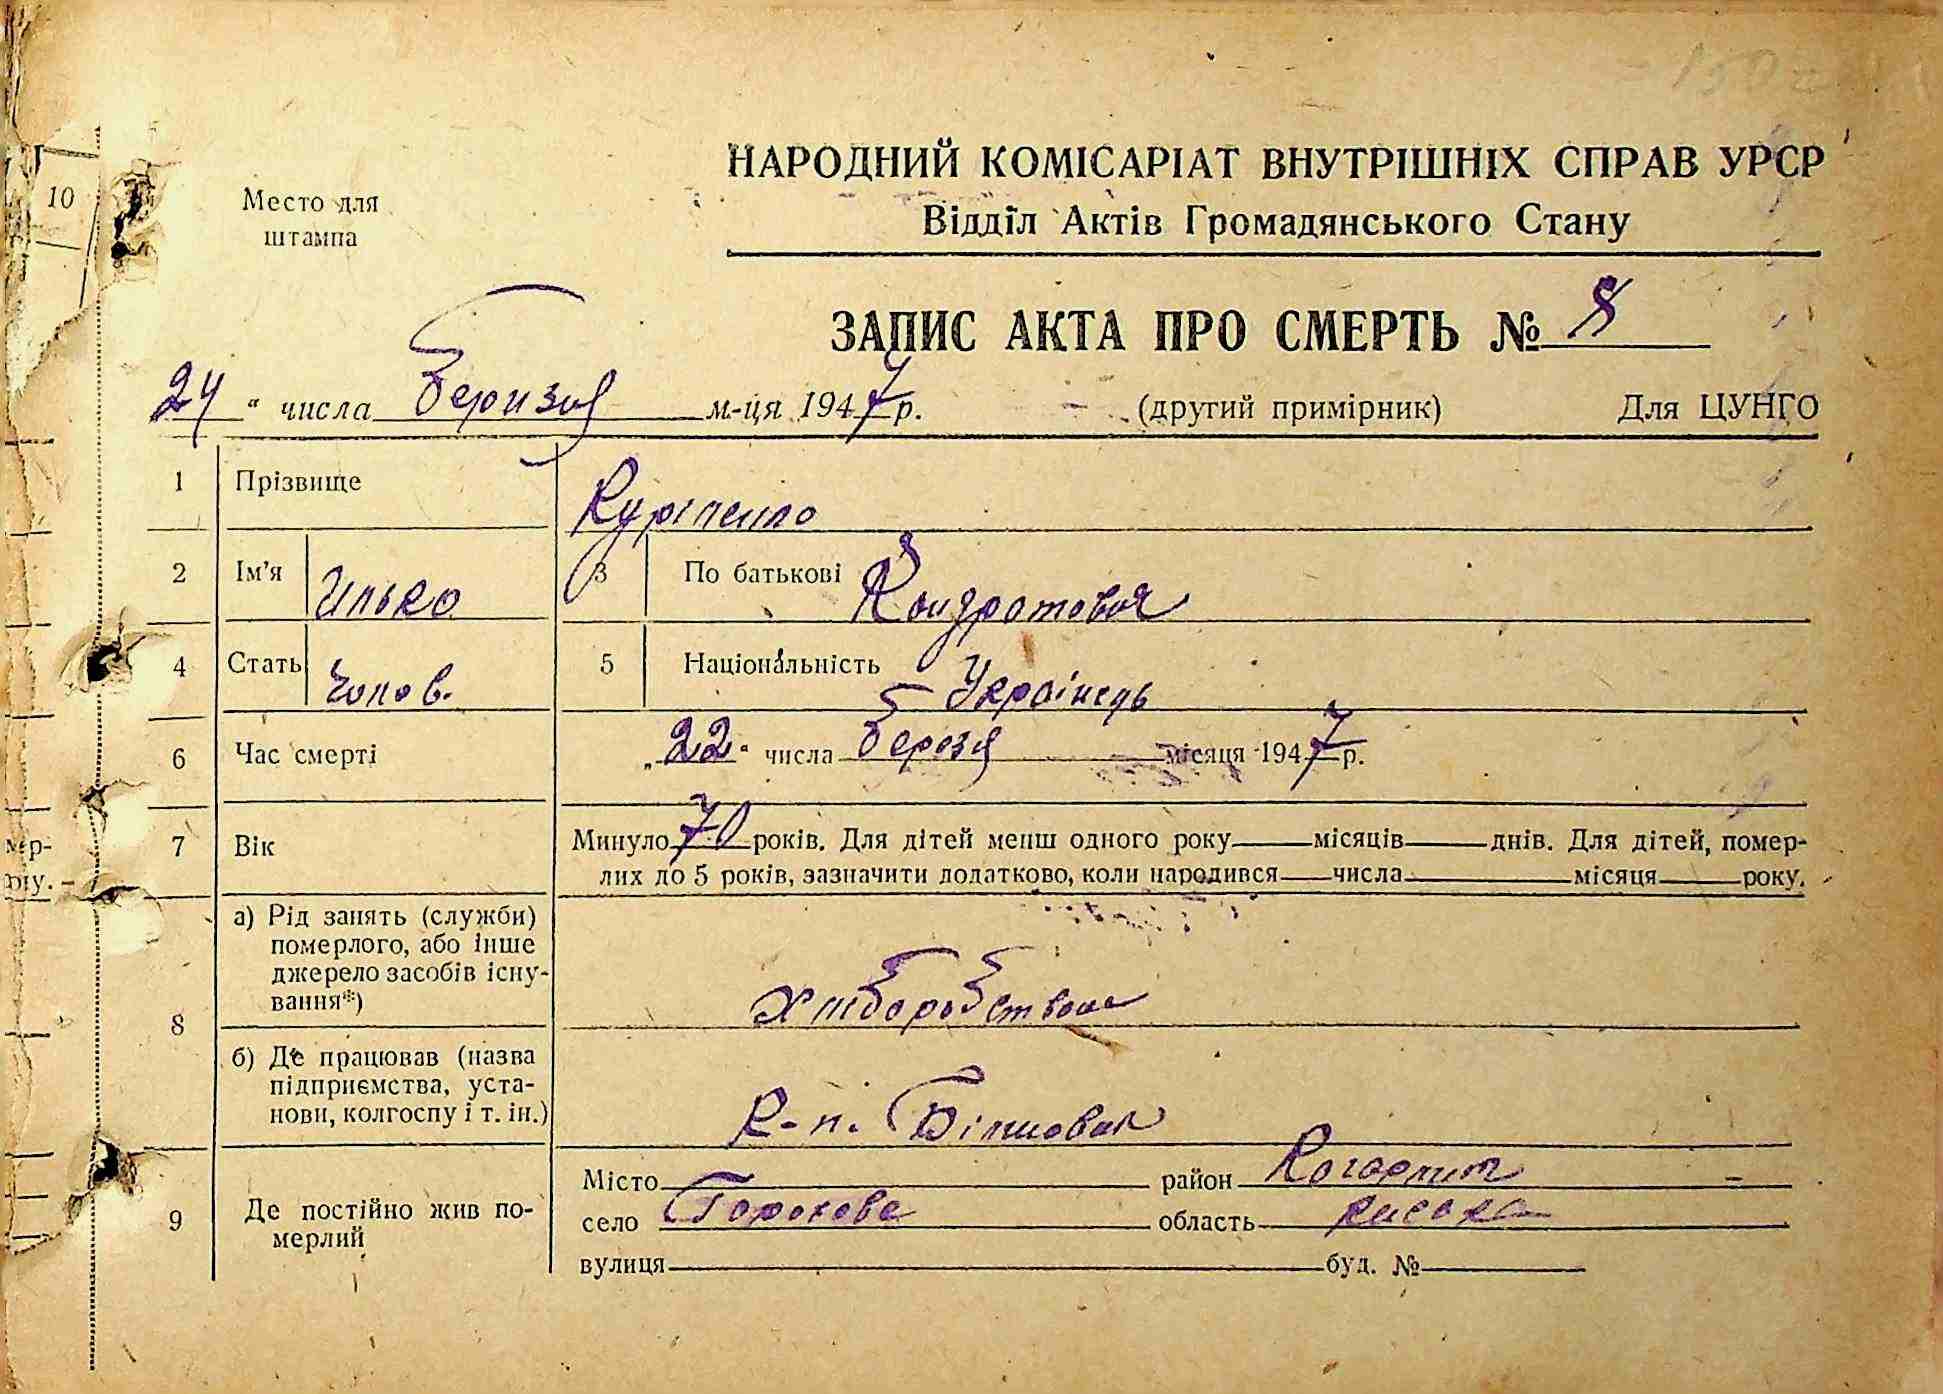 10
Место для
штампа
НАРОДНИЙ КОМІСАРІАТ ВНУТРІШНІХ СПРАВ УРСР
Відділ Актів Громадянського Стану
ЗАПИС АКТА ПРО СМЕРТЬ № 8
24 " числа Беризня м-ця 1947 р. (другий примірник) Для ЦУНГО
1 Прізвище Куріпенко
2 Ім'я Илько 3 По батькові Кондратович
4 Стать Чолов. 5 Національність Українець
6 Час смерті „22" числа березня місяця 1947 р.
7 Вік Минуло 70 років. Для дітей менш одного року місяців днів. Для дітей, помер-
лих до 5 років, зазначити додатково, коли народився числа місяця року.
8 а) Рід занять (службы) померлого, або інше джерело засобів існу-
вання*)
Хліборобством
б) Де працював (назва
підприємства, уста-
нови, колгоспу і т. ін.)
К-п.
9 Де постійно жив по-
мерлий
Місто район Кагарлит
село Горохове область
вулиця буд. №